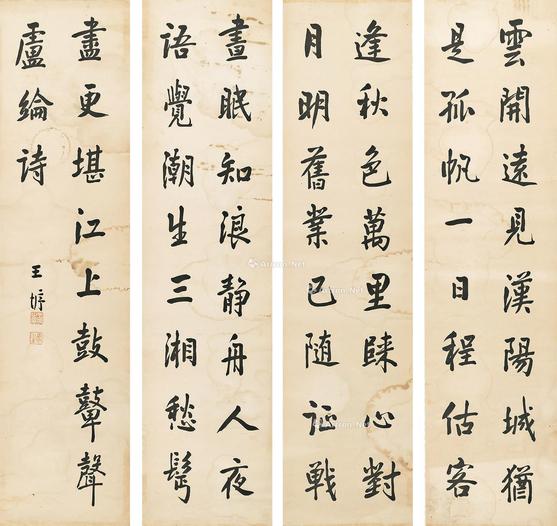 雲開遠見漢陽城猶
是孤帆一日程估客
逢秋色萬里歸心對
月明舊業已随征戰
晝眠知浪靜舟人夜
語覺潮生三湘愁鬢
盡更堪江上鼓鼙聲
盧綸詩
王垿
Artron.Net
Artron.Net
Artron.Net
Artron.Net